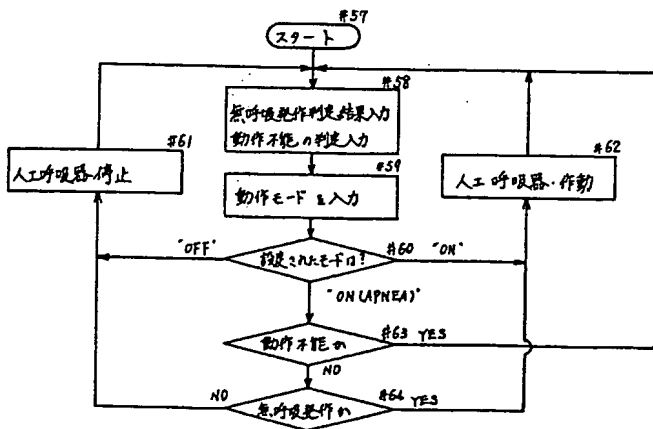 #57
スタート
#58
無呼吸発作判定結果入力
動作不能の判定入力
#61
人工呼吸器・停止
#59
動作モードを入力
#62
人工呼吸器・作動
"OFF"
設定されたモードは?
#60
"ON"
"ON(APNEA)"
動作不能か
#63
YES
NO
NO
無呼吸発作か
#64
YES